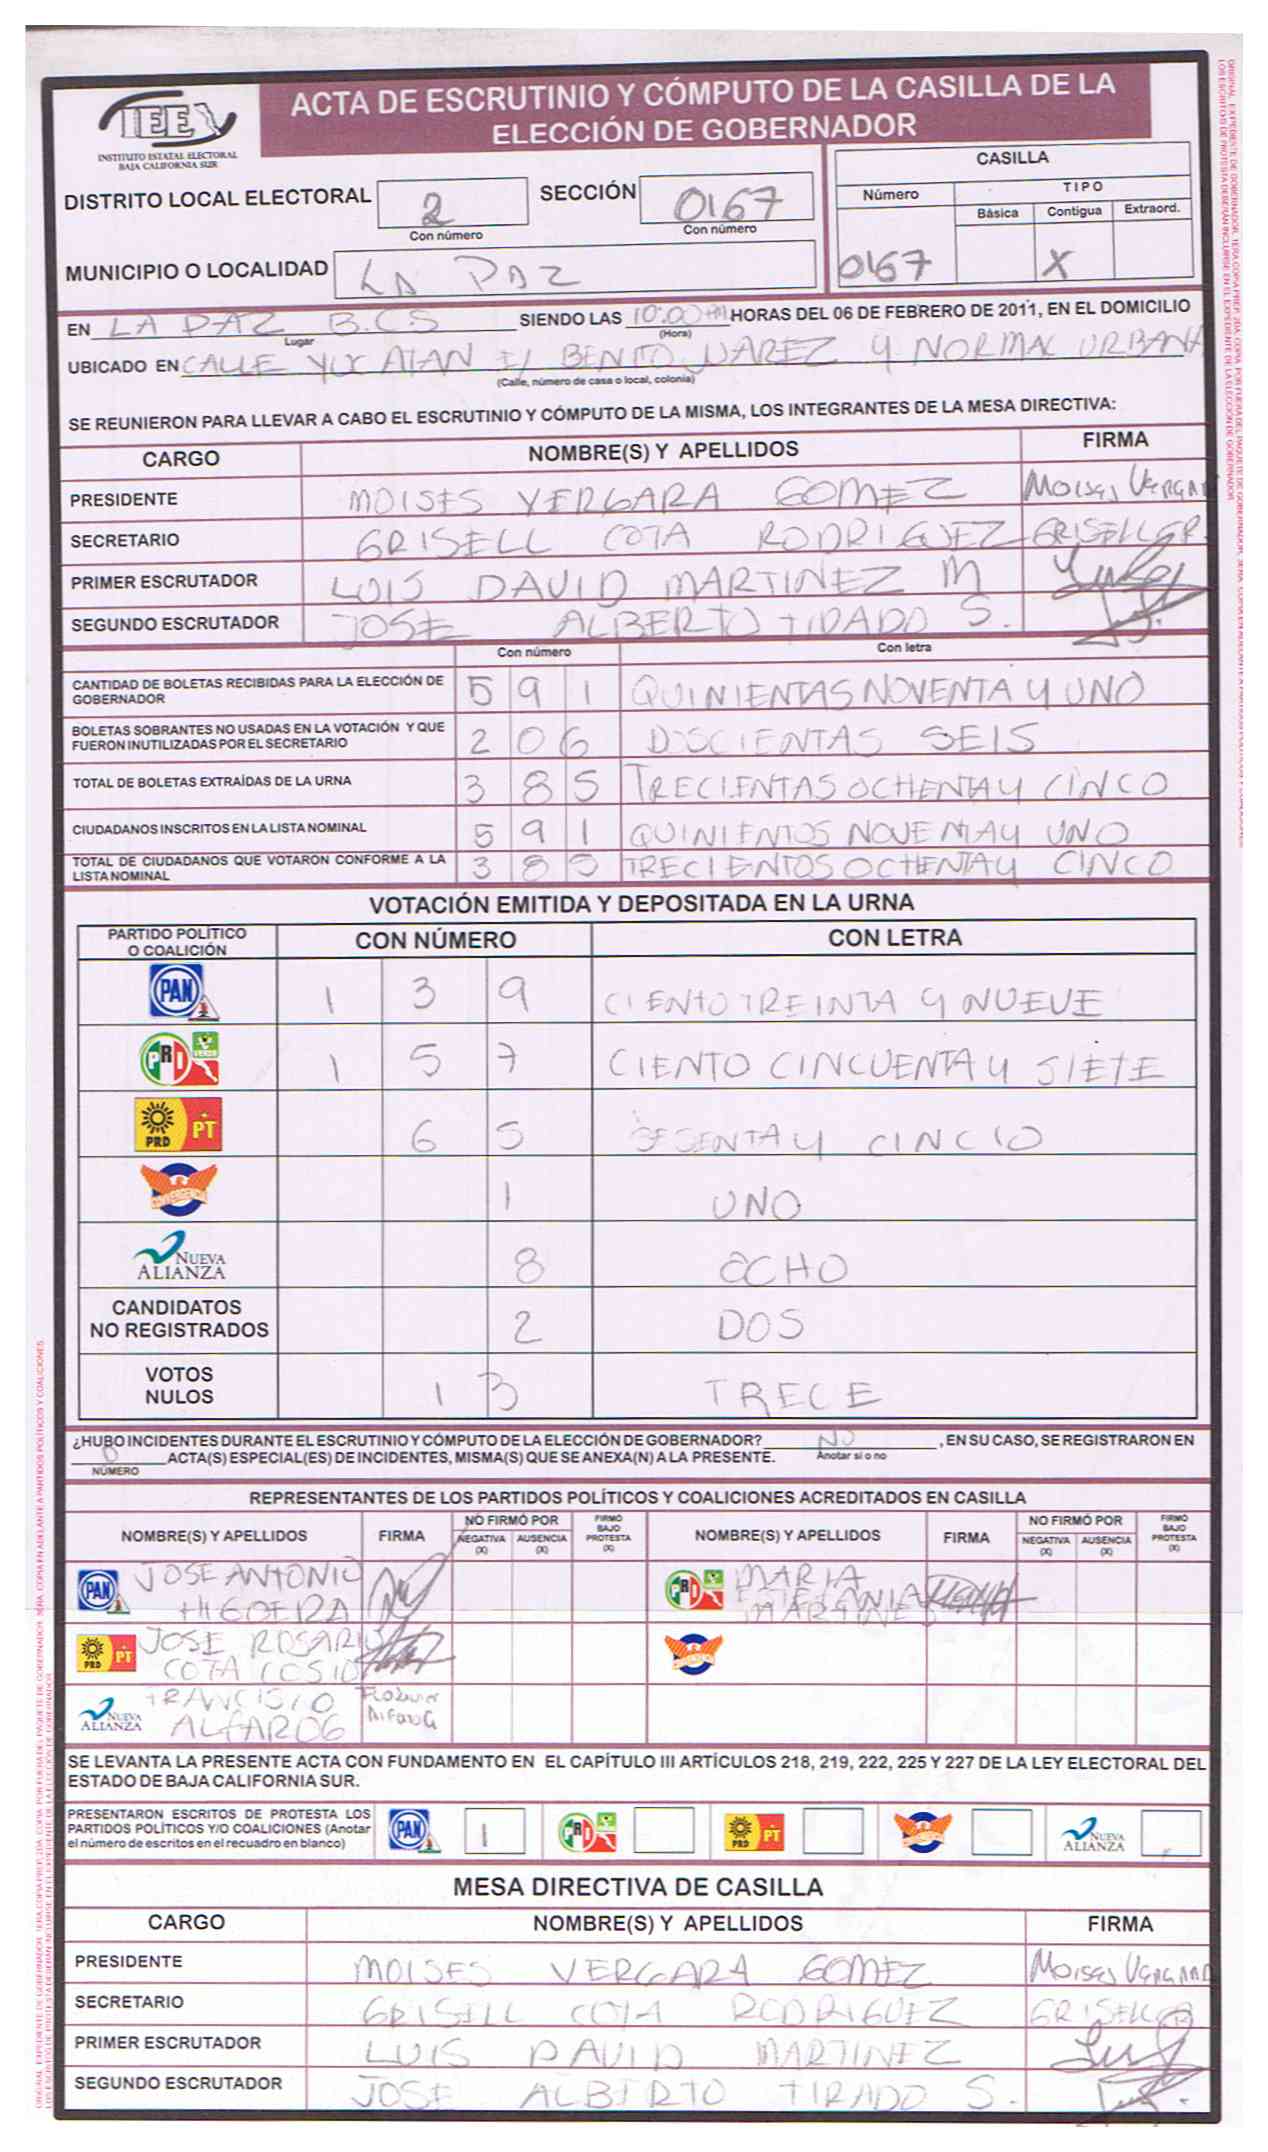 ACTA DE ESCRUTINIO Y CÓMPUTO DE LA CASILLA DE LA
ELECCIÓN DE GOBERNADOR
INSTITUTO ESTATAL ELECTORAL
BAJA CALIFORNIA SUR
DISTRITO LOCAL ELECTORAL 2 SECCIÓN 0167
Con número Con número
MUNICIPIO O LOCALIDAD LA PAZ
CASILLA
Número TIPO
Básica Contigua Extraord.
0167 X
EN LA PAZ B.C.S SIENDO LAS 10:00 PM HORAS DEL 06 DE FEBRERO DE 2011, EN EL DOMICILIO
Lugar (Hora)
UBICADO EN CALLE YUCATAN E/ BENITO JUAREZ Y NORMAL URBANA
(Calle, número de casa o local, colonia)
SE REUNIERON PARA LLEVAR A CABO EL ESCRUTINIO Y CÓMPUTO DE LA MISMA, LOS INTEGRANTES DE LA MESA DIRECTIVA:
CARGO NOMBRE(S) Y APELLIDOS FIRMA
PRESIDENTE MOISES VERGARA GOMEZ Moises Vergara
SECRETARIO GRISELL COTA RODRIGUEZ GRISELLCR.
PRIMER ESCRUTADOR LUIS DAVID MARTINEZ M
SEGUNDO ESCRUTADOR JOSE ALBERTO TIRADO S.
Con número Con letra
CANTIDAD DE BOLETAS RECIBIDAS PARA LA ELECCIÓN DE GOBERNADOR 591 QUINIENTAS NOVENTA Y UNO
BOLETAS SOBRANTES NO USADAS EN LA VOTACIÓN Y QUE FUERON INUTILIZADAS POR EL SECRETARIO 206 DOSCIENTAS SEIS
TOTAL DE BOLETAS EXTRAÍDAS DE LA URNA 385 TRECIENTAS OCHENTA Y CINCO
CIUDADANOS INSCRITOS EN LA LISTA NOMINAL 591 QUINIENTOS NOVENTA Y UNO
TOTAL DE CIUDADANOS QUE VOTARON CONFORME A LA LISTA NOMINAL 385 TRECIENTOS OCHENTA Y CINCO
VOTACIÓN EMITIDA Y DEPOSITADA EN LA URNA
PARTIDO POLÍTICO O COALICIÓN CON NÚMERO CON LETRA
PAN 1 3 9 CIENTO TREINTA Y NUEVE
PRI VERDE 1 5 7 CIENTO CINCUENTA Y SIETE
PRD PT 6 5 SESENTA Y CINCIO
CONVERGENCIA 1 UNO
NUEVA ALIANZA 8 OCHO
CANDIDATOS NO REGISTRADOS 2 DOS
VOTOS NULOS 1 3 TRECE
¿HUBO INCIDENTES DURANTE EL ESCRUTINIO Y CÓMPUTO DE LA ELECCIÓN DE GOBERNADOR? NO , EN SU CASO, SE REGISTRARON EN
0 ACTA(S) ESPECIAL(ES) DE INCIDENTES, MISMA(S) QUE SE ANEXA(N) A LA PRESENTE. Anotar si o no
NÚMERO
REPRESENTANTES DE LOS PARTIDOS POLÍTICOS Y COALICIONES ACREDITADOS EN CASILLA
NOMBRE(S) Y APELLIDOS FIRMA NO FIRMÓ POR NEGATIVA (X) AUSENCIA (X) FIRMÓ BAJO PROTESTA (X) NOMBRE(S) Y APELLIDOS FIRMA NO FIRMÓ POR NEGATIVA (X) AUSENCIA (X) FIRMÓ BAJO PROTESTA (X)
PAN JOSE ANTONIO HIGUERA PRI MARIA MARTINEZ
PRD PT JOSE ROSARIO COTA COSIO CONVERGENCIA
NUEVA ALIANZA FRANCISCO ALFARO G
SE LEVANTA LA PRESENTE ACTA CON FUNDAMENTO EN EL CAPÍTULO III ARTÍCULOS 218, 219, 222, 225 Y 227 DE LA LEY ELECTORAL DEL
ESTADO DE BAJA CALIFORNIA SUR.
PRESENTARON ESCRITOS DE PROTESTA LOS
PARTIDOS POLÍTICOS Y/O COALICIONES (Anotar
el número de escritos en el recuadro en blanco)
PAN 1 PRI PRD PT CONVERGENCIA NUEVA ALIANZA
MESA DIRECTIVA DE CASILLA
CARGO NOMBRE(S) Y APELLIDOS FIRMA
PRESIDENTE MOISES VERGARA GOMEZ Moises Vergara
SECRETARIO GRISELL COTA RODRIGUEZ GRISELLCR
PRIMER ESCRUTADOR LUIS DAVID MARTINEZ
SEGUNDO ESCRUTADOR JOSE ALBERTO TIRADO S.